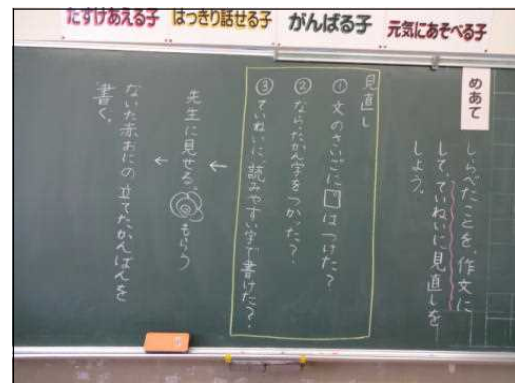 たすけあえる子
はっきり話せる子
がんばる子
元気にあそべる子
めあて
しらべたことを、作文に
して、ていねいに見直しを
しよう。
見直し
① 文のさいごに。はつけた？
② ならったかん字をつかった？
③ ていねいに、読みやすい字で書けた？
←
先生に見せる。もらう
←
ないた赤おにの立てたかんばんを
書く。